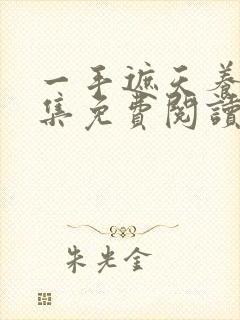 一手遮天養
集免費閱讀
朱光金